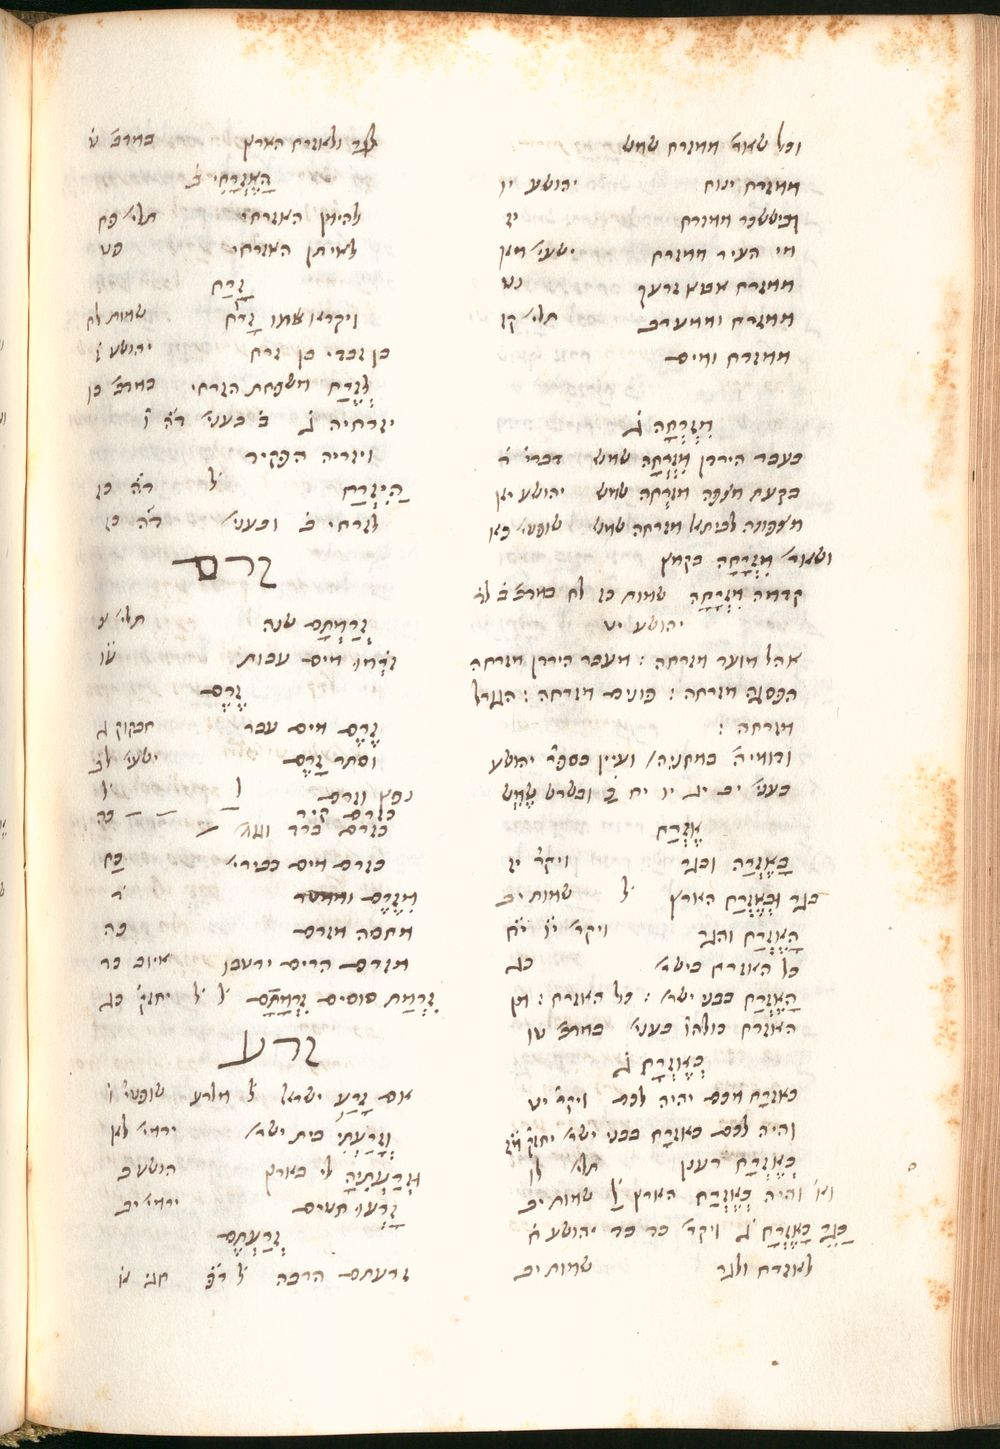 וכל שאר׳ ממזרח שמש
ממזרח ינוח יהושע יו
וביששכר ממזרח יז
מי העיר ממזרח ישעי׳ מאן
ממזרח אביא זרעך
ממזרח וממערב תלי׳ קז
ממזרח ומים
מִזְרָחָה ג֗
בעבר הירדן מִזְרְחָה שמש דברי׳
בקעת מצפה מזרחה יהושע יא
שמש שופטי׳
ושאר׳ מִזְרָחָה בקמץ
קדמה מִזְרָחָה שמות כז לח במדב׳
יהושע יט
אהל מועד מזרחה : מעבר הירדן מזרחה
הפסגה מזרחה : פונים מזרחה : הגורל
מזרחה :
ועיין בספר יהושע
סי׳ יב יג יו יח ובשרש שֶׁמֶשׁ
אֶזְרַח
בָאֶזְרָח ובגר ויקר׳ יז
בגר וּבְאֶזְרַח הארץ ל׳ שמות יב
הָאֶזְרָח והגר ויקר׳
כל האזרח בישר׳ כג
הָאֶזְרָח בבני ישר׳ : כל האזרח : מן
האזרח במדב׳ טו
כְּאֶזְרָח ג֗
כאזרח מכם יהיה לכם ויקר׳ יט
והיה לכם כאזרח בבני ישר׳ יחזק׳ מז
כְּאֶזְרָח רענן תלי׳ לז
והיה כְּאֶזְרַח הארץ ל׳ שמות יב
כַּגֵּר כָּאֶזְרָח ג֗ ויקר׳ כד כד יהושע ח
לאזרח ולגר שמות יב
לגר ולאזרח הארץ במדב׳ ט
הָאֶזְרָחִי ב֗
להימן האזרחי תלי׳ פח
לאיתן האזרחי פט
זֶרַח
ויקרא שמו זָרַח
בן זבדי בן זרח יהושע ז
לְזֶרַח משפחת הזרחי במדב׳ כו
יזרחיה ג֗
ויזרחיה הפקיד
הַיִּזְרָח ל׳
לזרחי ב֗
זרם
זְרַמְתָּם שנה תלי׳ צ
זֹרְמוּ מים עבות
זֶרֶם
זֶרֶם מים עבר חבקוק ג
וסתר זָרֶם ישעי׳ לב
נפץ וזרם ל׳
כזרם קיר כה
כזרם ברד
כזרם מים כבירי׳ כח
מִזֶּרֶם וממטר
מחסה מזרם כה
מזרם הרים ירטבו איוב כד
וְזִרְמַת סוסים זִרְמָתָם ל׳ ל׳ יחזק׳ כג
זרע
אם זָרַע ישראל ל׳ מלרע שופטי׳ ו
וְזָרַעְתִּי בית ישר׳ ירמי׳ לא
וּזְרַעְתִּיהָ לי בארץ הושע ב
זָרְעוּ חטים ירמי׳ יב
זְרַעְתֶּם
זרעתם הרבה חגי א